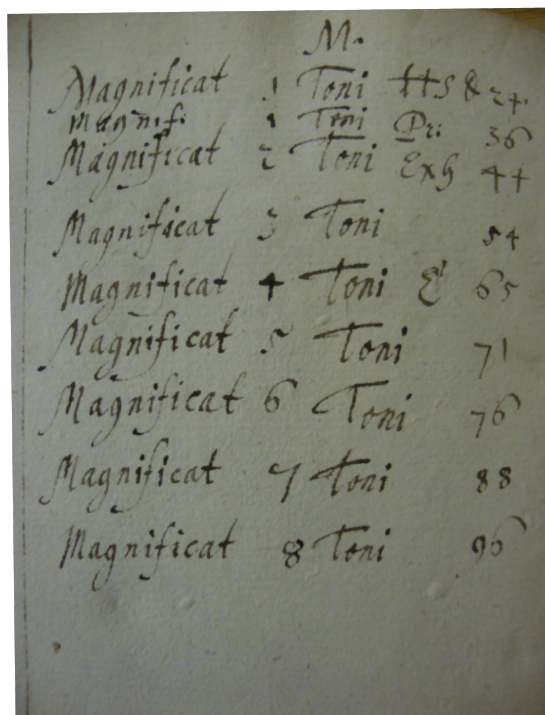 M.
Magnificat 1 Toni 24.
Magnif: 1 Toni Pr: 36
Magnificat 2 Toni Exh 44
Magnificat 3 Toni 54
Magnificat 4 Toni 65
Magnificat 5 Toni 71
Magnificat 6 Toni 76
Magnificat 7 Toni 88
Magnificat 8 Toni 96